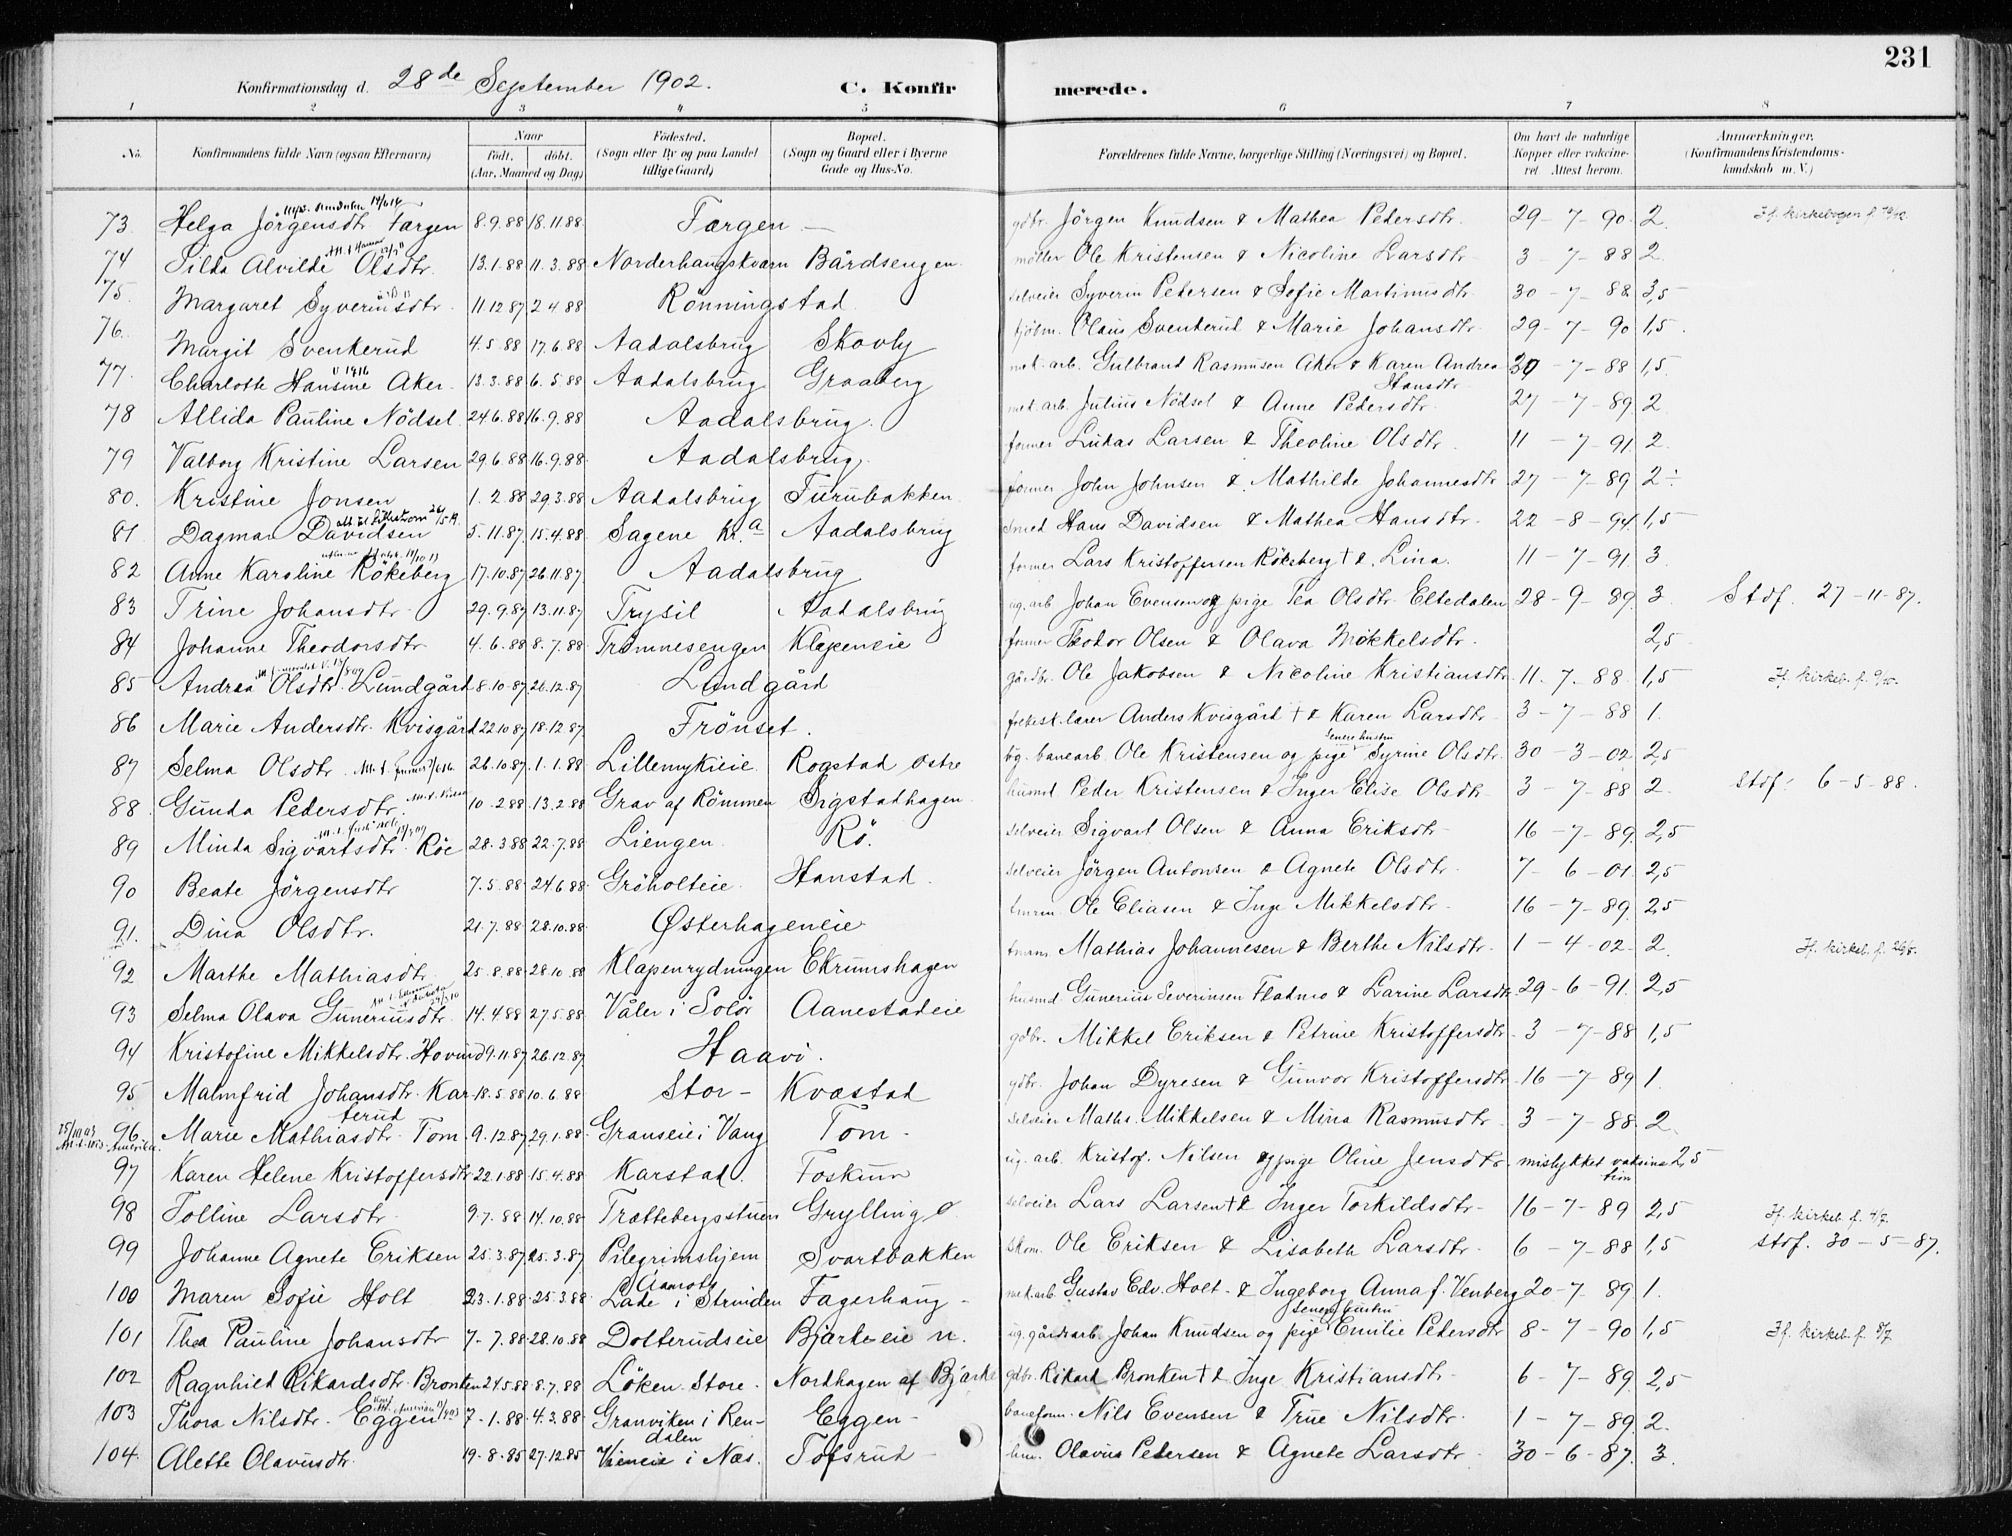 231
Konfirmationsdag d. 28de September 1902. C. Konfirmerede.
1 2 3 4 5 6 7 8
No. Konfirmandens fulde Navn (ogsaa Efternavn) Naar født. døbt. (Aar, Maaned og Dag) Fødested. (Sogn eller By og paa Landet tillige Gaard) Bopæl. (Sogn og Gaard eller i Byerne Gade og Hus-No. Forældrenes fulde Navne, borgerlige Stilling (Næringsvei) og Bopæl. Om havt de naturlige Kopper eller vakcineret. Attest herom. Anmærkninger. (Konfirmandens Kristendomskundskab m. V.)
73 Helga Jörgensdtr Færgen 8.9.88 18.11.88 Færgen — gdbr. Jörgen Knudsen & Mathea Pedersdtr. 29-7-90. 2.
74 Silda Alvilde Olsdtr. 13.1.88 11.3.88 Norderhaugskværn Bårdsengen. möller Ole Kristensen & Nicoline Larsdtr 3-7-88 2.
75. Margaret Syverinsdtr. 11.12.87 2.4.88 Rönningstad selveier Syverin Petersen & Sofie Martinusdtr. 30-7-88 3,5
76. Margit Svenkerud 4.5.88 17.6.88 Aadalsbrug Skovly Olaus Svenkerud & Marie Johansdtr. 29-7-90 1,5.
77. Charlotte Hansine Aker. 13.3.88 6.5.88 Aadalsbrug Graaberg mek. arb. Gulbrand Rasmusen Aker & Karen Andrea Hansdtr 30-7-88 1,5.
78 Allida Pauline Nödsel. 24.6.88 16.9.88 Aadalsbrug. mek. arb. Julius Nödsel & Anne Pedersdtr. 27-7-89. 2
79 Valborg Kristine Larsen 29.6.88 16.9.88. Aadalsbrug. former Lukas Larsen & Theoline Olsdtr 11-7-91. 2.
80. Kristine Jonsen 1.2.88 29.3.88 Aadalsbrug Furubakken former John Johnsen & Mathilde Johannesdtr 27-7-89 2÷
81 Dagmar Davidsen 5.11.87. 15.4.88 Sagene Kr.a Aadalsbrug smed Hans Davidsen & Mathea Hansdtr. 22-8-94 1,5
82 Anne Karoline Rökeberg 17.10.87 26.11.87 Aadalsbrug former Lars Kristoffersen Rökeberg † & Lina. 11-7-91. 3.
83 Trine Johansdtr. 29.9.87 13.11.87 Trysil Aadalsbrug ug. arb. Johan Evensen og pige Tea Olsdtr Eltedalen 28-9-89. 3. Stdf. 27-11-87.
84 Johanne Theodorsdtr 4.6.88 8.7.88 Tromnesengen Klæpeneie former Teodor Olsen & Olava Mikkelsdtr. 2,5
85 Andrea Olsdtr. Lundgård 8.10.87 26.12.87 Lundgård gårdbr. Ole Jakobsen & Nicoline Kristiansdtr. 11-7-88. 1,5
86 Marie Andersdtr. Kvisgård 22.10.87 18.12.87 Frönset. folkesk.lærer Anders Kvisgård † & Karen Larsdtr. 3-7-88 1.
87 Selma Olsdtr. 26.10.87 1.1.88 Lillemykieie Rogstad østre banearb. Ole Kristensen og pige senere hustru Syrine Olsdtr. 30-3-02 2,5
88. Gunda Pedersdtr. 10.2.88. 13.2.88 Grav af Römmen Sigstadhagen husmd Peder Kristensen & Inger Elise Olsdtr 3-7-88 2. Stdf. 6-5-88.
89 Minda Sigvartsdtr. Röe 28.3.88 22.7.88 Liengen. Rö. selveier Sigvart Olsen & Anna Eriksdtr 16-7-89. 2,5
90 Beate Jörgensdtr 7.5.88. 24.6.88 Gröholteie. Hanstad. selveier Jörgen Antonsen & Agnete Olsdtr. 7-6-01. 2,5
91. Dina Olsdtr. 21.7.88. 28.10.88 Østerhageneie Ole Eliasen & Inge Mikkelsdtr. 16-7-89. 2,5
92 Marthe Mathiasdtr. 25.8.88 28.10.88 Klæpenrydningen Ekrumshagen Mathias Johannesen & Berthe Nilsdtr. 1-4-02. 2.
93 Selma Olava Guneriusdtr. 14.4.88 27.5.88 Våler i Solör Aanestadeie husmd Gunerius Severinsen Flatmo & Larine Larsdtr 29-6-91. 2,5
94 Kristofine Mikkelsdtr. Hovind 9.11.87 26.12.87 Haavi. gdbr. Mikkel Eriksen & Petrine Kristoffersdtr. 3-7-88 1,5
95 Malmfrid Johansdtr. Karterud 18.5.88 10.6.88 Stor- Kvæstad gdbr. Johan Dyresen & Gunvor Kristoffersdtr. 16-7-89 1.
96. Marie Mathiasdtr. Tom 9.12.87 29.1.88. Granseie i Vang Tom. selveier Maths. Mikkelsen & Mina Rasmusdtr. 3-7-88 2.
97 Karen Helene Kristoffersdtr 22.1.88 15.4.88 Karstad. Foskum ug. arb. Kristof. Nilsen og pige Oline Jensdtr mislykket vaksination 2,5
98 Tolline Larsdtr. 9.7.88 14.10.88 Trættebergsstuen Grylling ø selveier Lars Larsen † & Inger Torkildsdtr. 16-7-89 2,5
99 Johanne Agnete Eriksen 25.3.87 25.3.87 Pilegrimshjem Svartbakken Skom. Ole Eriksen & Lisabeth Larsdtr. 6-7-88 1,5 Stdf. 30-5-87.
100 Maren Sofie Holt 23.1.88. 25.3.88. Lade i Strinden Fagerhaug. mek.arb. Gustav Edv. Holt & Ingeborg Anna f. Venberg 20-7-89 1.
101 Thea Pauline Johansdtr 7.7.88 28.10.88 Dotterudseie Bjørkeeie n. ug. gårdsarb. Johan Knudsen og pige senere hustru Emilie Pedersdtr 8-7-90 1,5
102 Ragnhild Rikardsdtr. Bronken 24.5.88 8.7.88 Löken Store. Nordhagen af Bjørke gdbr. Rikard Bronken † & Inge Kristiansdtr. 6-7-89 2,5
103 Thora Nilsdtr. Eggen 7.1.88. 4.3.88. Granviken i Rendalen Eggen. baneform. Nils Evensen & True Nilsdtr. 1-7-89. 2.
104. Alette Olavusdtr. 19.8.85 27.12.85 Vieneie i Næs. Tofsrud Olavus Pedersen & Agnete Larsdtr. 30-6-87. 3.